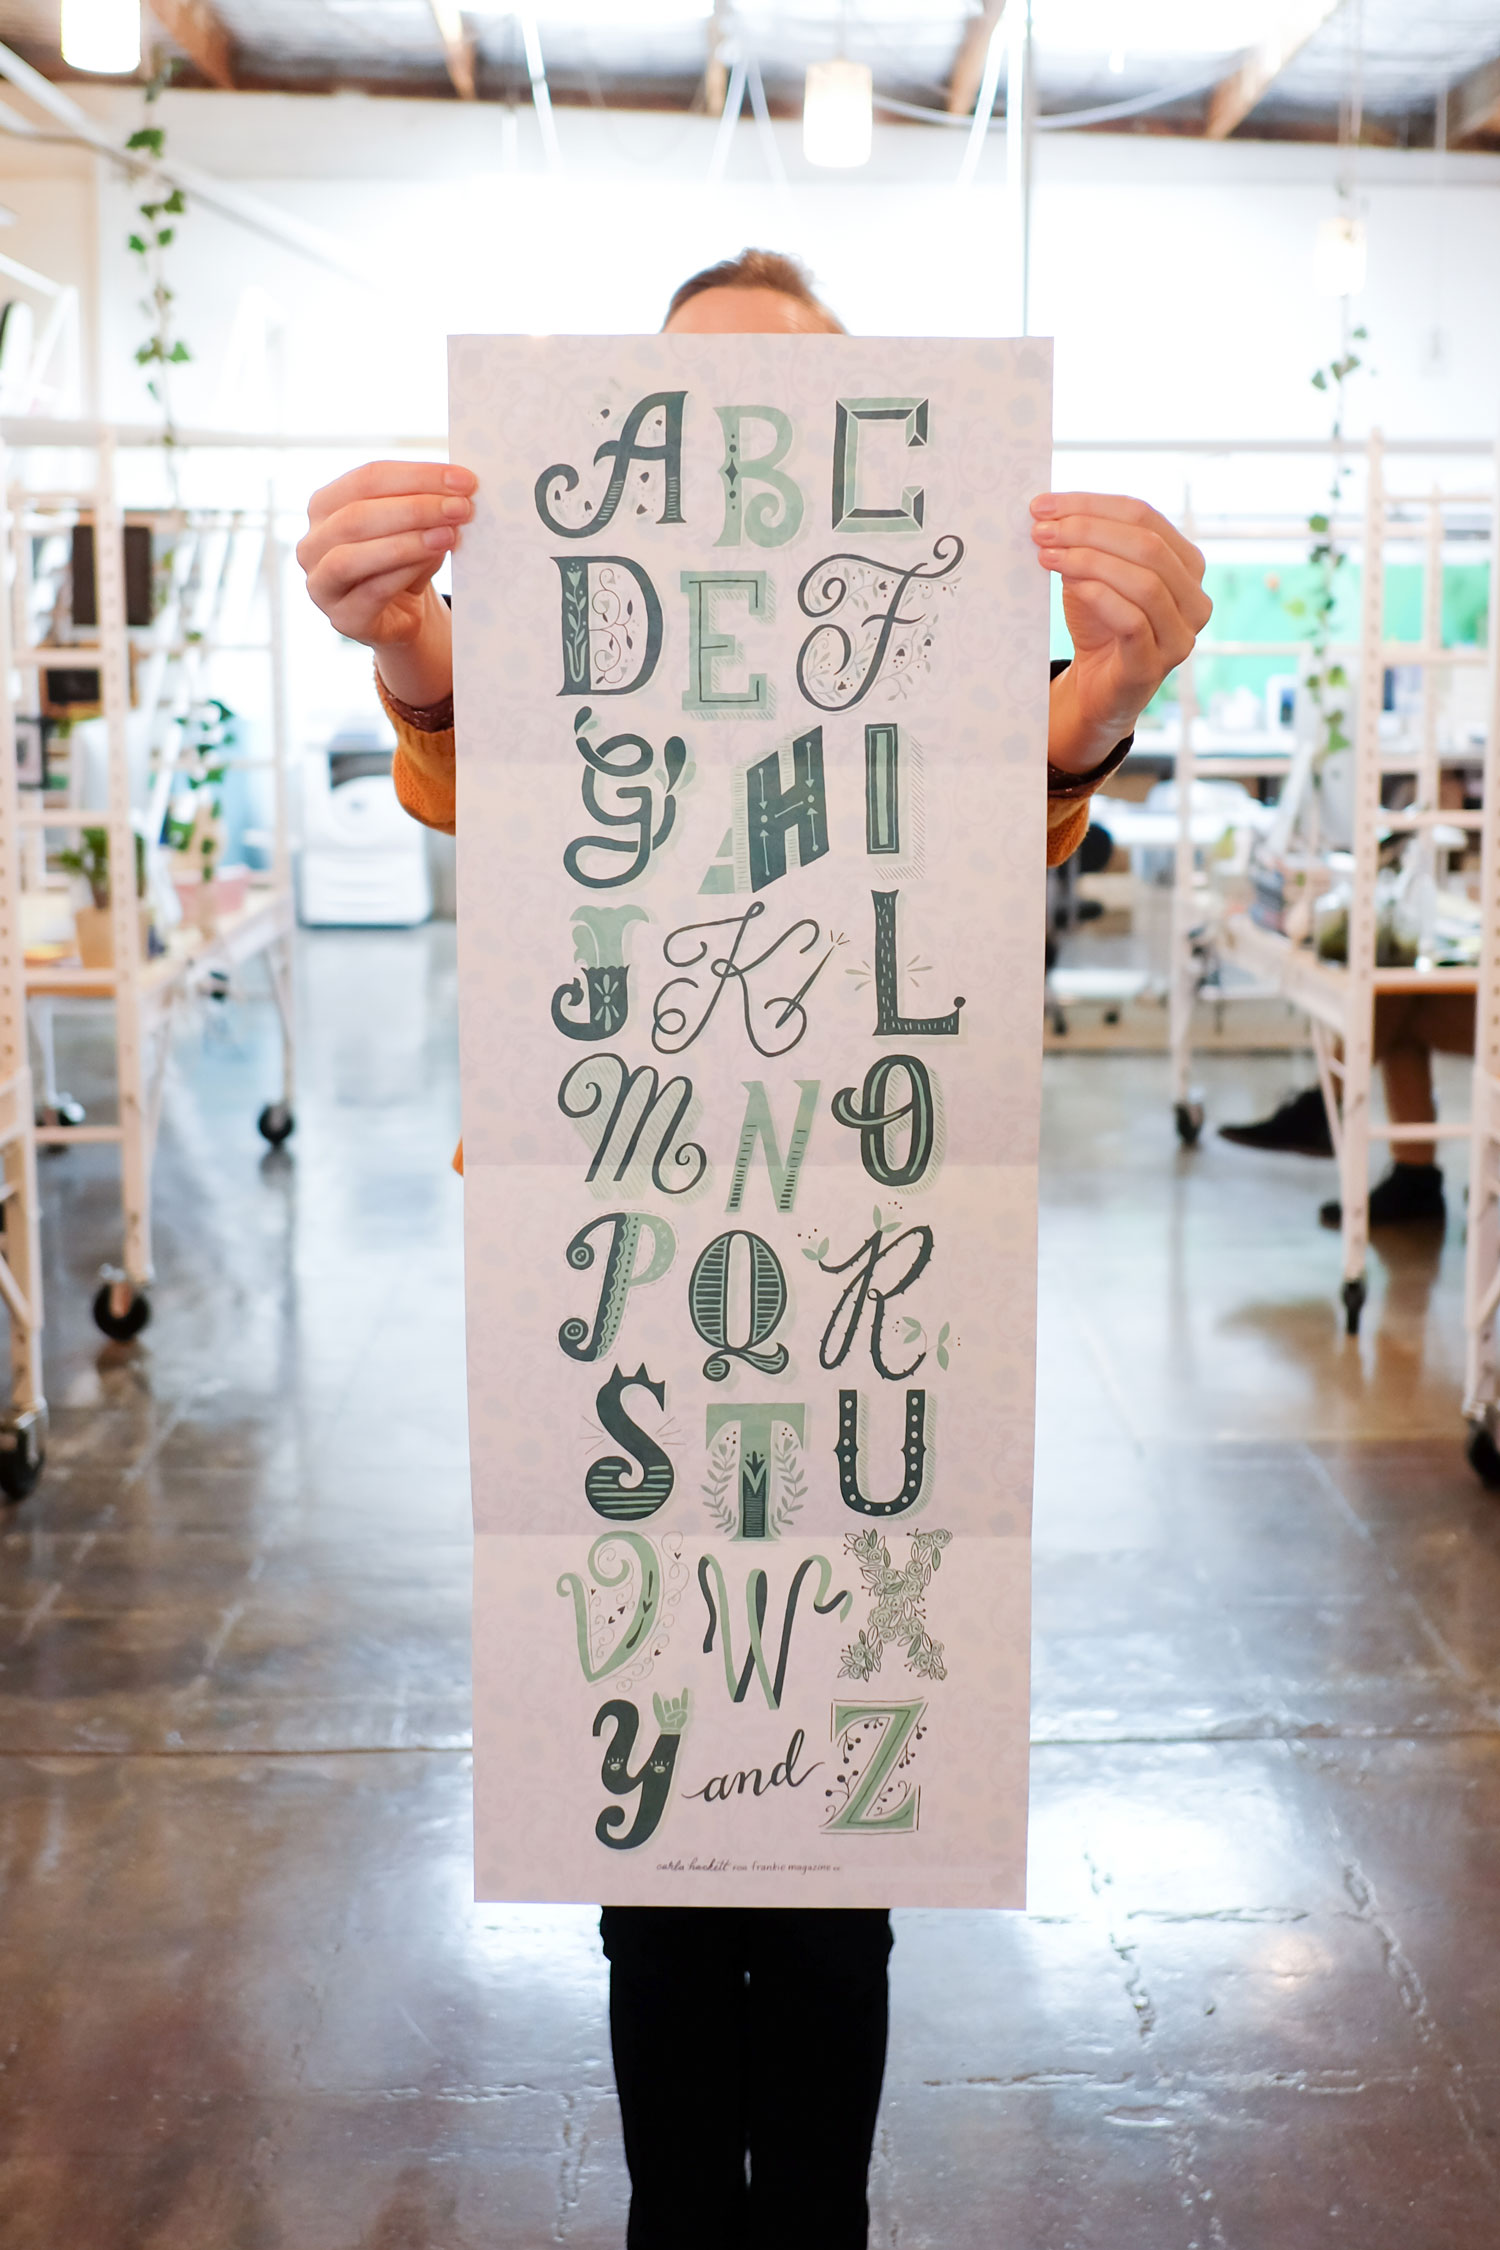 A B C
D E F
G H I
J K L
M N O
P Q R
S T U
V W X
Y and Z
carla hackett FOR frankie magazine